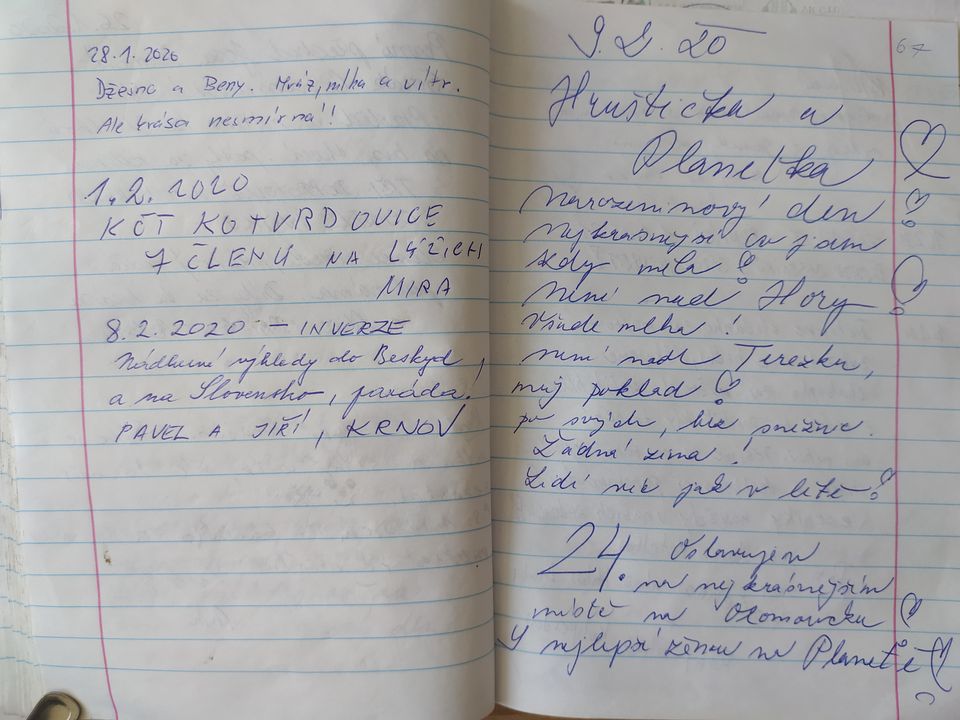 28.1.2020
Džesna a Beny. Mráz, mlha a vítr.
Ale krása nesmírná!!
1.2.2020
KČT KOTVRDOVICE
7 ČLENŮ NA LYŽÍCH
MIRA
8.2.2020 – INVERZE
Nádherné výhledy do Beskyd,
a na Slovensko, paráda!
PAVEL A JIŘÍ, KRNOV
67
9.2.20
Hruštička a
Planetka
Narozeninový den
nejkrásnější co jsem
kdy měla!
Není nad Hory
Všude mlha!
není nad Terezku,
můj poklad!
po svých, bez sněžnic.
Žádná zima!
Lidí víc jak v létě!
24. Oslavujem
na nejkrásnějším
místě na Olomoucku
S nejlepší ženou na Planetě!